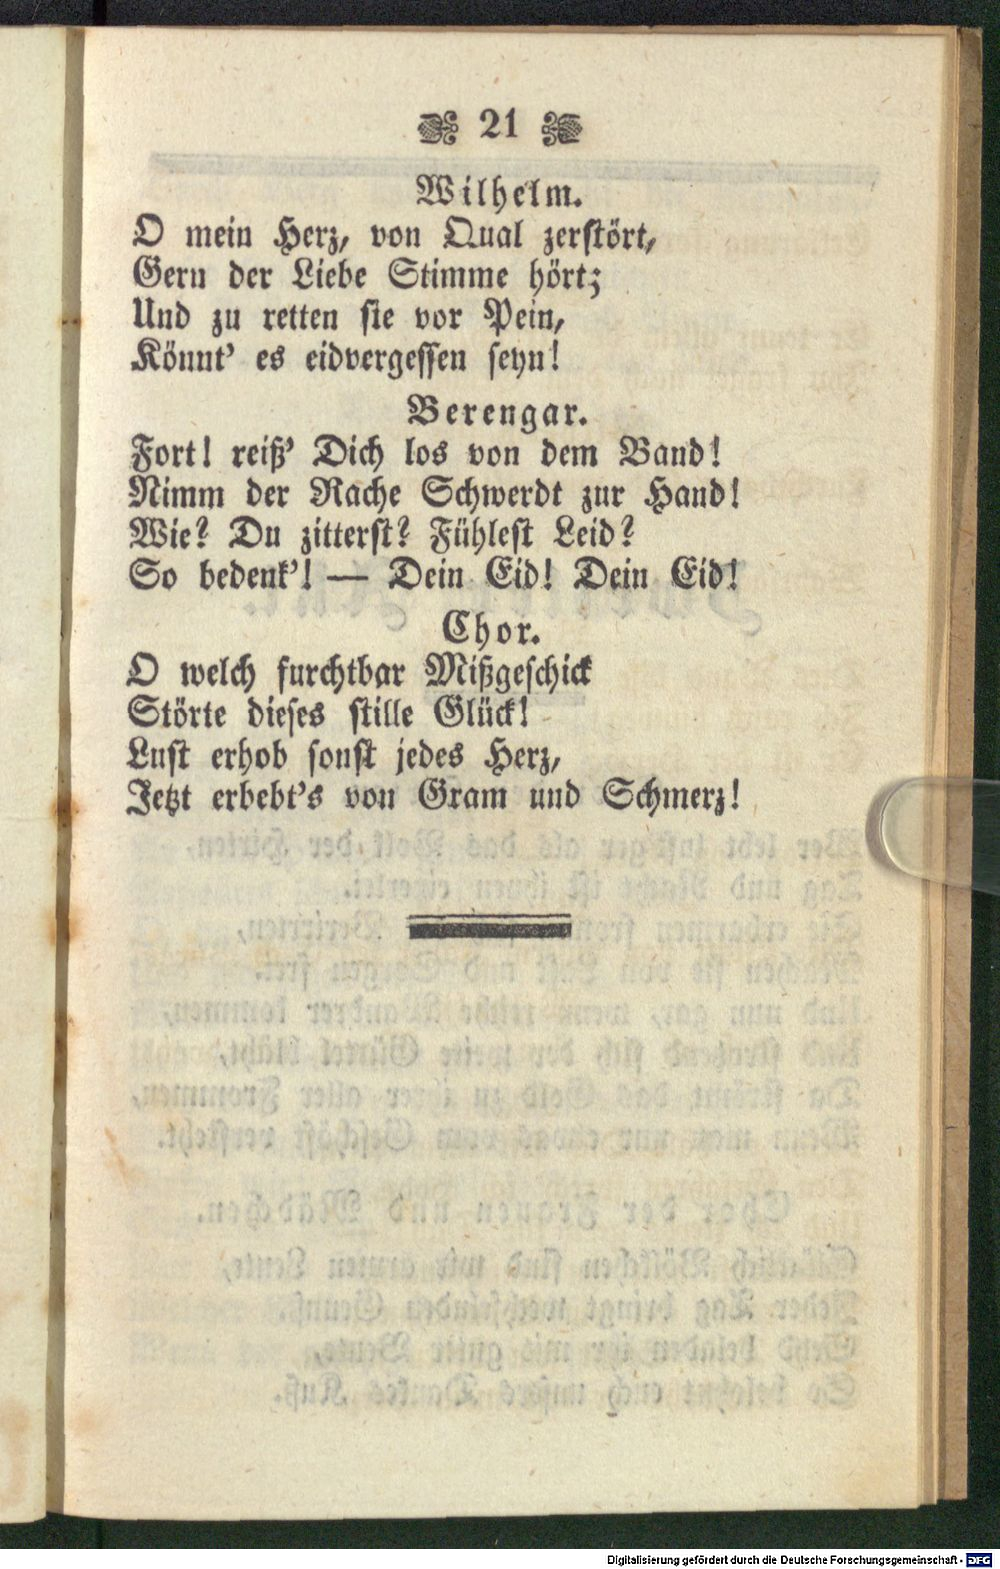 21
Wilhelm.
O mein Herz, von Qual zerstört,
Gern der Liebe Stimme hört;
Und zu retten sie vor Pein,
Könnt' es eidvergessen seyn!
Berengar.
Fort! reiß' Dich los von dem Band!
Nimm der Rache Schwerdt zur Hand!
Wie? Du zitterst? Fühlest Leid?
So bedenk'! — Dein Eid! Dein Eid!
Chor.
O welch furchtbar Mißgeschick
Störte dieses stille Glück!
Lust erhob sonst jedes Herz,
Jetzt erbebt's von Gram und Schmerz!
Digitalisierung gefördert durch die Deutsche Forschungsgemeinschaft - DFG